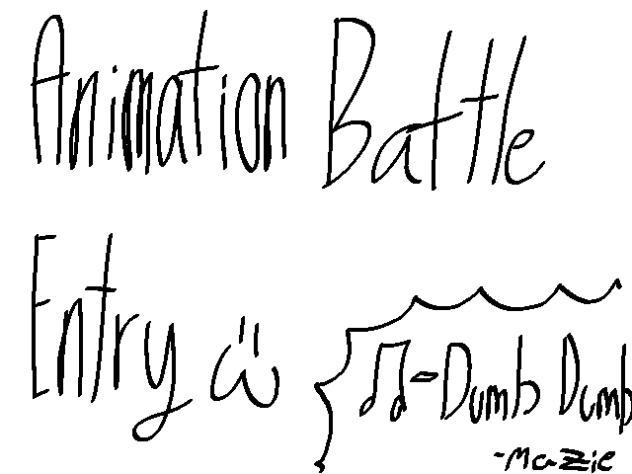 Animation Battle
Entry ω̈
♫-Dumb Dumb
-Mazie